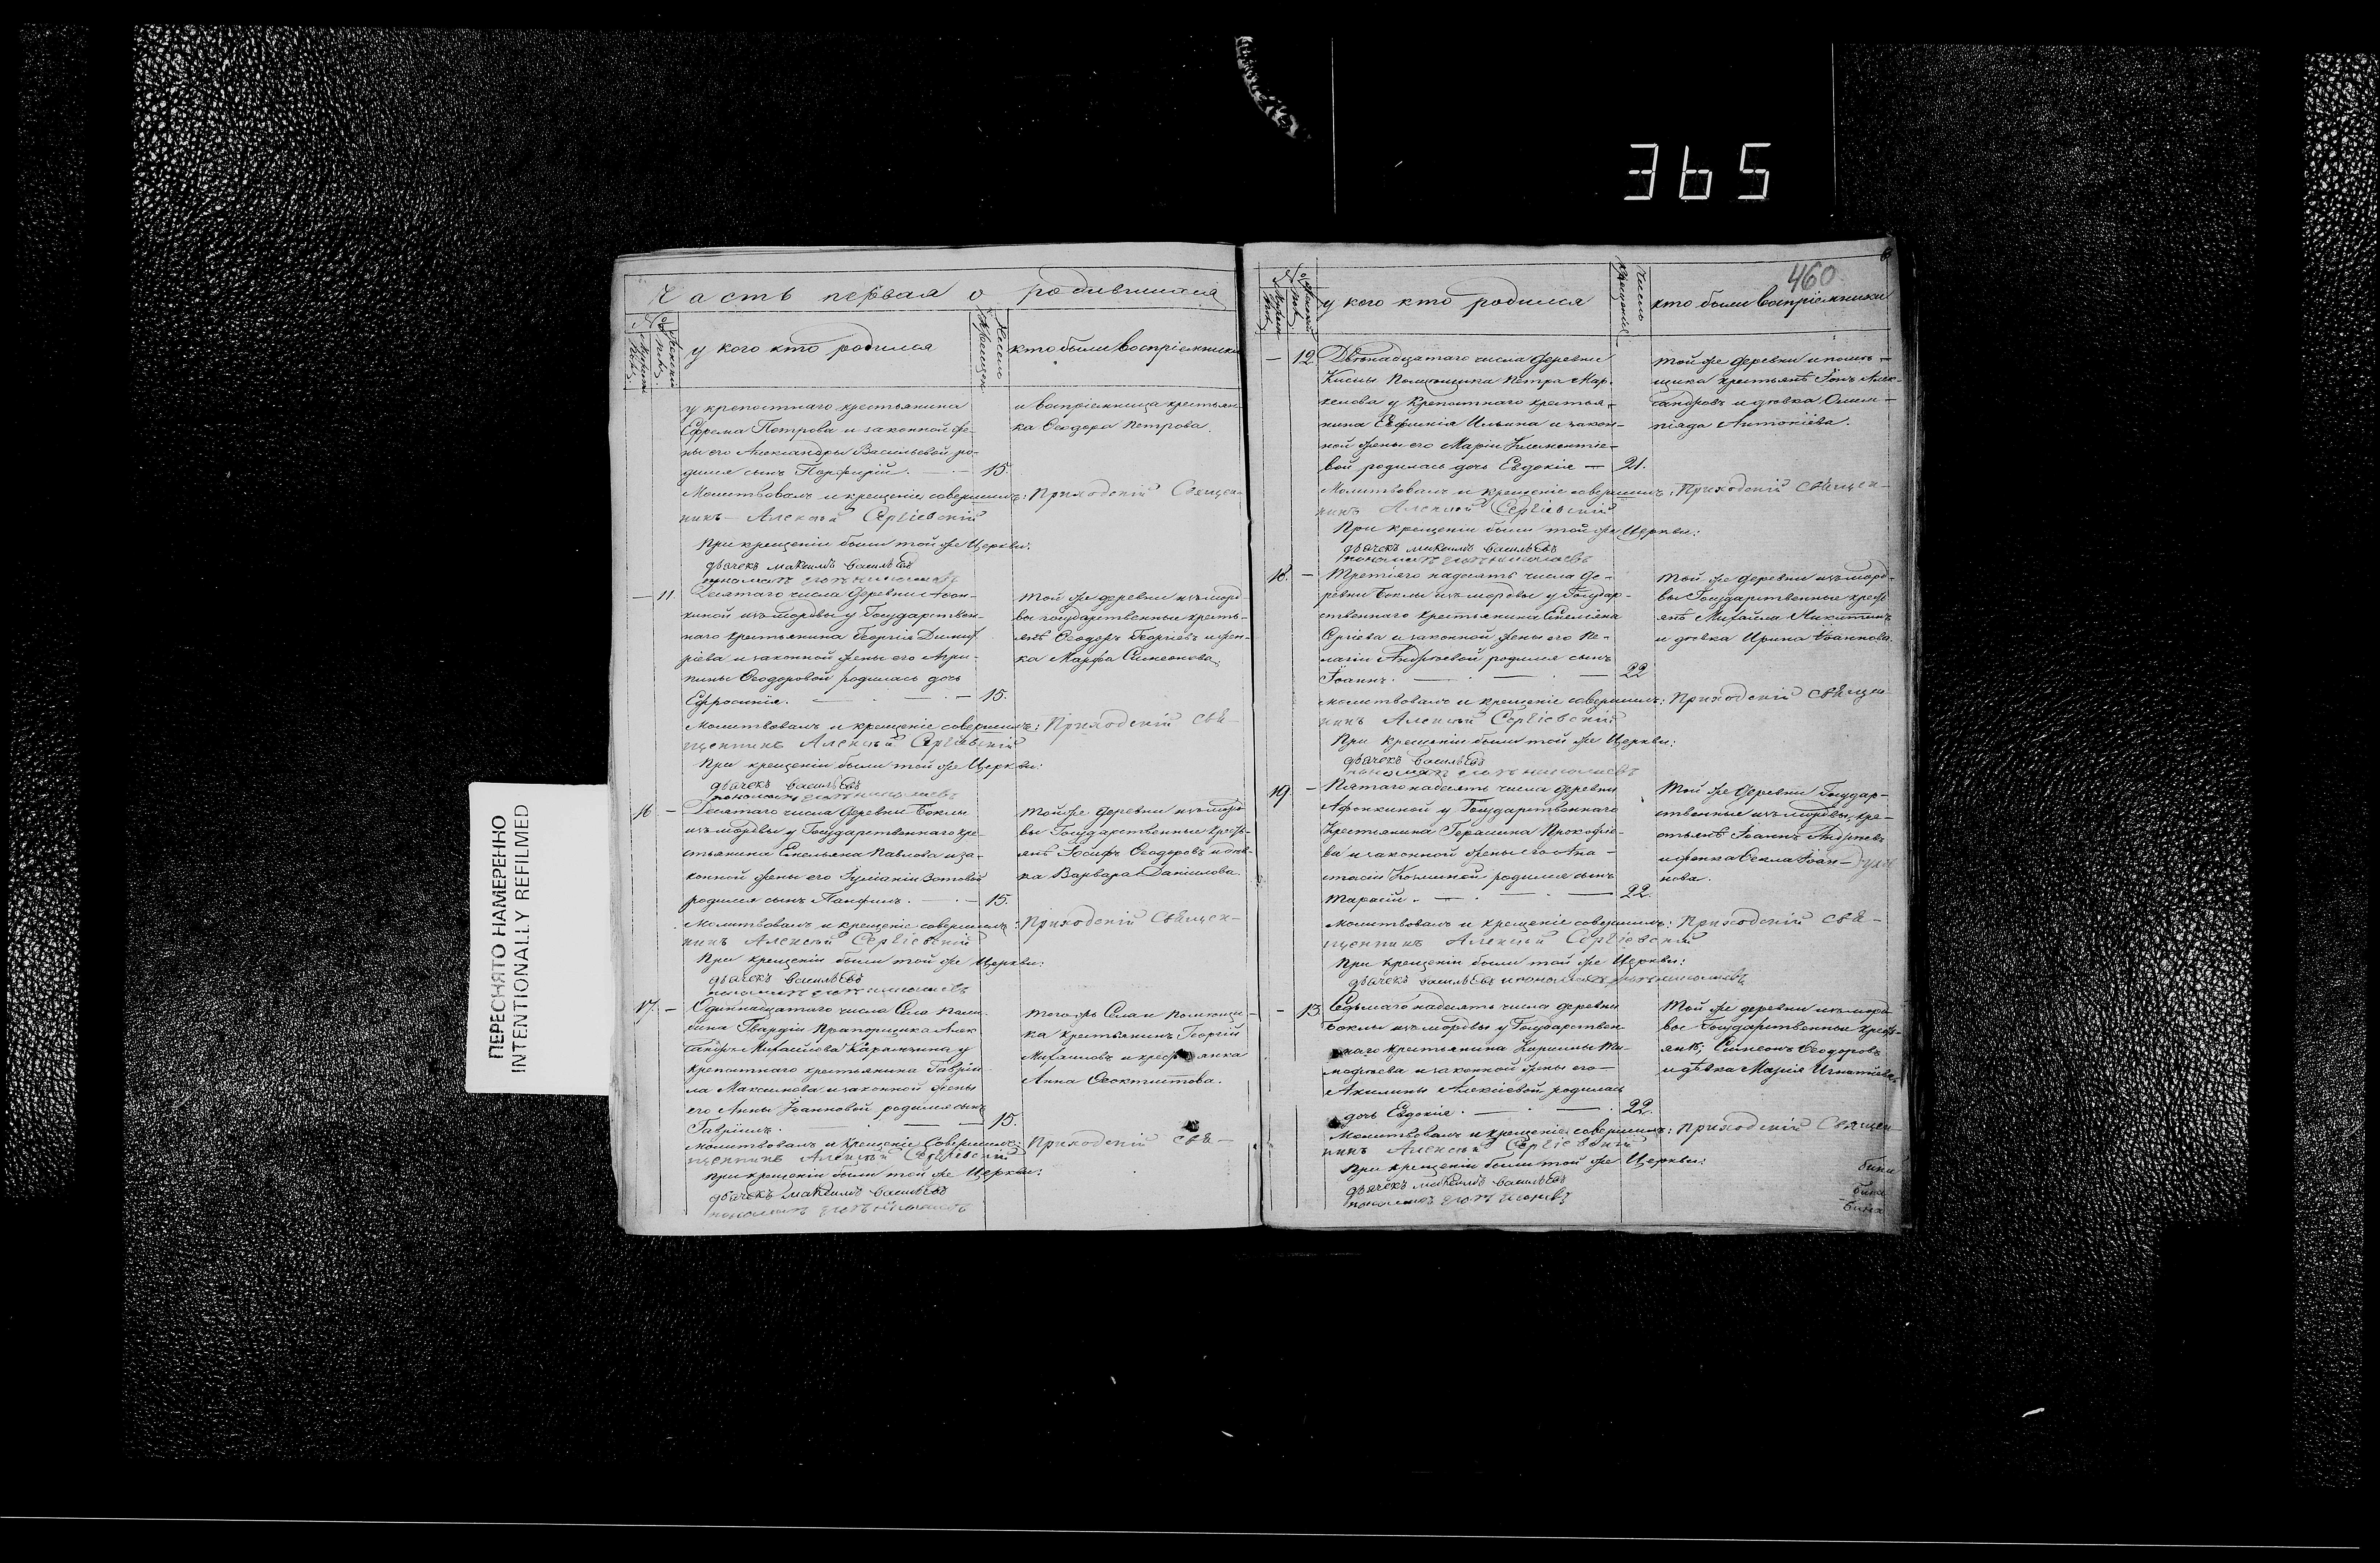 365
ПЕРЕСНЯТО НАМЕРЕННО
INTENTIONALLY REFILMED
Часть первая о родившихся
у кого кто родился
Число крещен.
кто были воспріемники
у крепостнаго крестьянина
Ефрема Петрова и законной же-
ны его Александры Васильевой ро-
дился сынъ Порфирій. — 15.
и воспріемница крестьян-
ка Ѳеодора Петрова.
Молитвовалъ и крещеніе совершилъ: Приходскій Священ-
никъ Алексѣй Сергіевскій
При крещеніи были той же Церкви:
дьячекъ максимъ васильевъ
11. Десятаго числа деревни Афон-
киной изъ мордвы у Государствен-
наго крестьянина Георгія Димит
ріева и законной жены его Агри-
пины Ѳеодоровой родилась дочь
Ефросинія. — 15.
той же деревни изъ морд-
вы государственные кресть-
янѣ Ѳеодоръ Георгіевъ и жон-
ка Марфа Симеонова.
Молитвовалъ и крещеніе совершилъ: Приходскій Свя-
щенникъ Алексѣй Сергіевскій
При крещеніи были той же Церкви:
дьячекъ васильевъ
16 — Десятаго числа деревни Боклы
изъ мордвы у Государственнаго кре-
стьянина Емельяна Павлова и за-
конной жены его Іуліаніи Зотовой
родился сынъ Панфилъ. — 15.
той же деревни изъ морд-
вы Государственные кресть-
янѣ Іосифъ Ѳеодоровъ и дѣв-
ка Варвара Даніилова.
Молитвовалъ и крещеніе совершилъ: Приходскій Священ-
никъ Алексѣй Сергіевскій
При крещеніи были той же Церкви:
дьячекъ васильевъ
17. — Одиннадцатаго числа Села
Гвардіи Прапорщика Алек
сандра Михайлова Карамзина у
крепостнаго крестьянина Гавріи
ла Максимова и законной жены
его Анны Іоанновой родился сынъ
Гавріилъ. — 15.
тогожъ Села и Помещи-
ка крестьянинъ Георгій
Михаиловъ и крестьянка
Анна Ѳеоктистова.
Молитвовалъ и крещеніе совершилъ: Приходскій Свя-
щенникъ Алексѣй Сергіевскій
При крещеніи были той же Церкви:
дьячекъ максимъ васильевъ
460
у кого кто родился
Число крещенія
кто были воспріемники
— 12 Двѣнадцатаго числа деревни
Кислы Помещика Петра Мар-
келова у Крепостнаго крестья-
нина Евфимія Ильина и закон-
ной жены его Маріи Климентіе-
вой родилась дочь Евдокія — 21.
той же деревни и помѣ-
щика крестьянѣ Іонъ Алек-
сандровъ и дѣвка Олим-
піяда Антоніева.
Молитвовалъ и крещеніе совершилъ: Приходскій Священ-
никъ Алексѣй Сергіевскій
При крещеніи были той же Церкви:
дьячекъ максимъ васильевъ
18. — Третьяго надесять числа де-
ревни Боклы изъ мордвы у Государ-
ственнаго Крестьянина Емеліана
Сергіева и законной жены его Пе-
лагіи Андреевой родился сынъ
Іоаннъ. — 22
той же деревни изъ морд-
вы Государственные кресть
янѣ Михаилъ Никитинъ
и дѣвка Ирина Іоаннова
Молитвовалъ и крещеніе совершилъ: Приходскій Священ
никъ Алексѣй Сергіевскій
При крещеніи были той же Церкви:
дьячекъ васильевъ
19. — Пятаго надесять числа деревни
Афонкиной у Государственнаго
Крестьянина Герасима Прокофіе-
ва и законной жены его Ана-
стасіи Козминой родился сынъ
Тарасій. — 22.
той же деревни Государ-
ственные изъ мордвы, кре-
стьянѣ Іоаннъ Андреевъ
и жонка Ѳекла Іоан-
нова.
Молитвовалъ и крещеніе совершилъ: Приходскій Свя-
щенникъ Алексѣй Сергіевскій
При крещеніи были той же Церкви:
дьячекъ васильевъ
— 13. Седьмаго надесять числа деревни
Боклы изъ мордвы у Государствен-
наго крестьянина Кириллы Ти-
мофеева и законной жены его
Акилины Алексіевой родилась
дочь Евдокія. — 22.
той же деревни изъ морд
вы Государственные кресть
янѣ; Симеонъ Ѳеодоровъ
и дѣвка Марія Игнатіева
Молитвовалъ и крещеніе совершилъ: Приходскій Священ
никъ Алексѣй Сергіевскій
При крещеніи были той же Церкви:
дьячекъ максимъ васильевъ